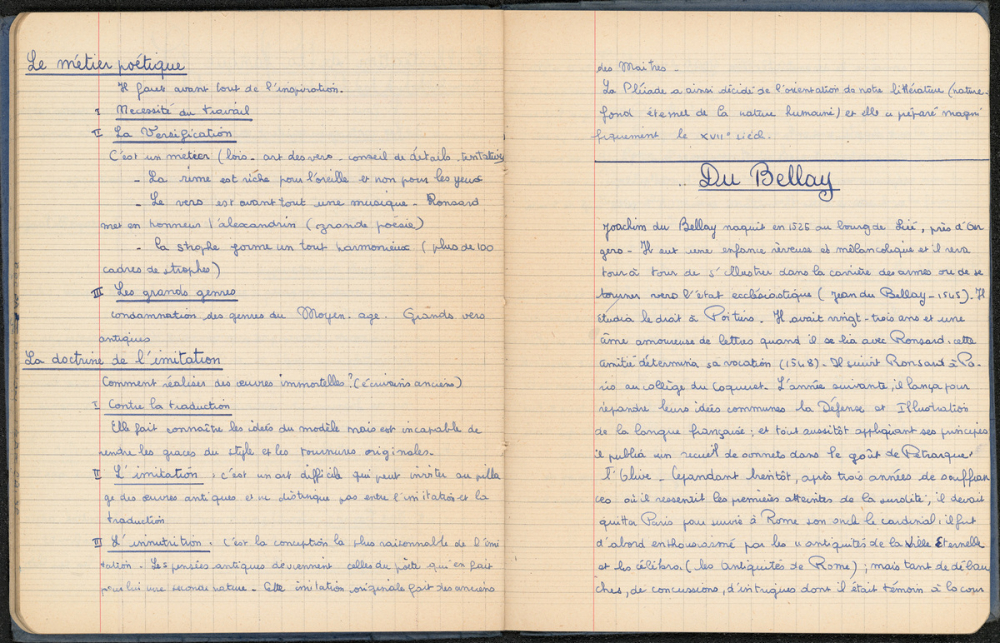 Le métier poétique
Il faut avant tout de l'inspiration.
I Necessité du travail
II La Versification
C'est un métier (lois - art des vers - conseil de détails - tentatives
- La rime est riche pour l'oreille et non pour les yeux
- Le vers est avant tout une musique - Ronsard
met en honneur l'alexandrin (grande poésie)
- la strophe forme un tout harmonieux (plus de 100
cadres de strophes)
III Les grands genres
condamnation des genres du Moyen-age. Grands vers
antiques
La doctrine de l'imitation
Comment réaliser des œuvres immortelles? (écrivains anciens)
I Contre la traduction
Elle fait connaître les idées du modèle mais est incapable de
rendre les graces du style et les tournures originales.
II L'imitation : c'est un art difficile qui peut inviter au pilla
ge des œuvres antiques et ne distingue pas entre l'imitation et la
traduction
III L'innutrition. C'est la conception la plus raisonnable de l'imi
tation - Les pensées antiques deviennent celles du poète qui en fait
pour lui une seconde nature - Cette imitation originale fait des anciens
des Maitres -
La Pléiade a ainsi décidé de l'orientation de notre littérature (nature-
fond éternel de la nature humaine) et elle a préparé magni
fiquement le XVIIe siècl.
Du Bellay
Joachim du Bellay naquit en 1525 au bourg de Liré, près d'An
gers - Il eut une enfance rêveuse et mélancolique et il rêva
tour à tour de s'illustrer dans la carrière des armes ou de se
tourner vers l'état ecclésiastique (Jean du Bellay - 1545). Il
étudia le droit à Poitiers. Il avait vingt-trois ans et une
âme amoureuse de lettres quand il se lia avec Ronsard; cette
amitié détermina sa vocation (1548) - Il suivit Ronsard à Pa-
ris au collège du Coqueret. L'année suivante, il lança pour
répandre leurs idées communes la Défense et Illustration
de la langue française; et tout aussitôt appliquant ses principes
il publia un recueil de sonnets dans le goût de Pétrarque:
l'Olive - Cependant bientôt, après trois années de souffran
ces où il ressentit les premières atteintes de la surdité, il devait
quitter Paris pour suivre à Rome son oncle le cardinal; il fut
d'abord enthousiasmé par les "antiquités de la ville Eternelle
et les célébra. (les Antiquités de Rome); mais tant de débau
ches, de concussions, d'intrigues dont il était témoin à la cour